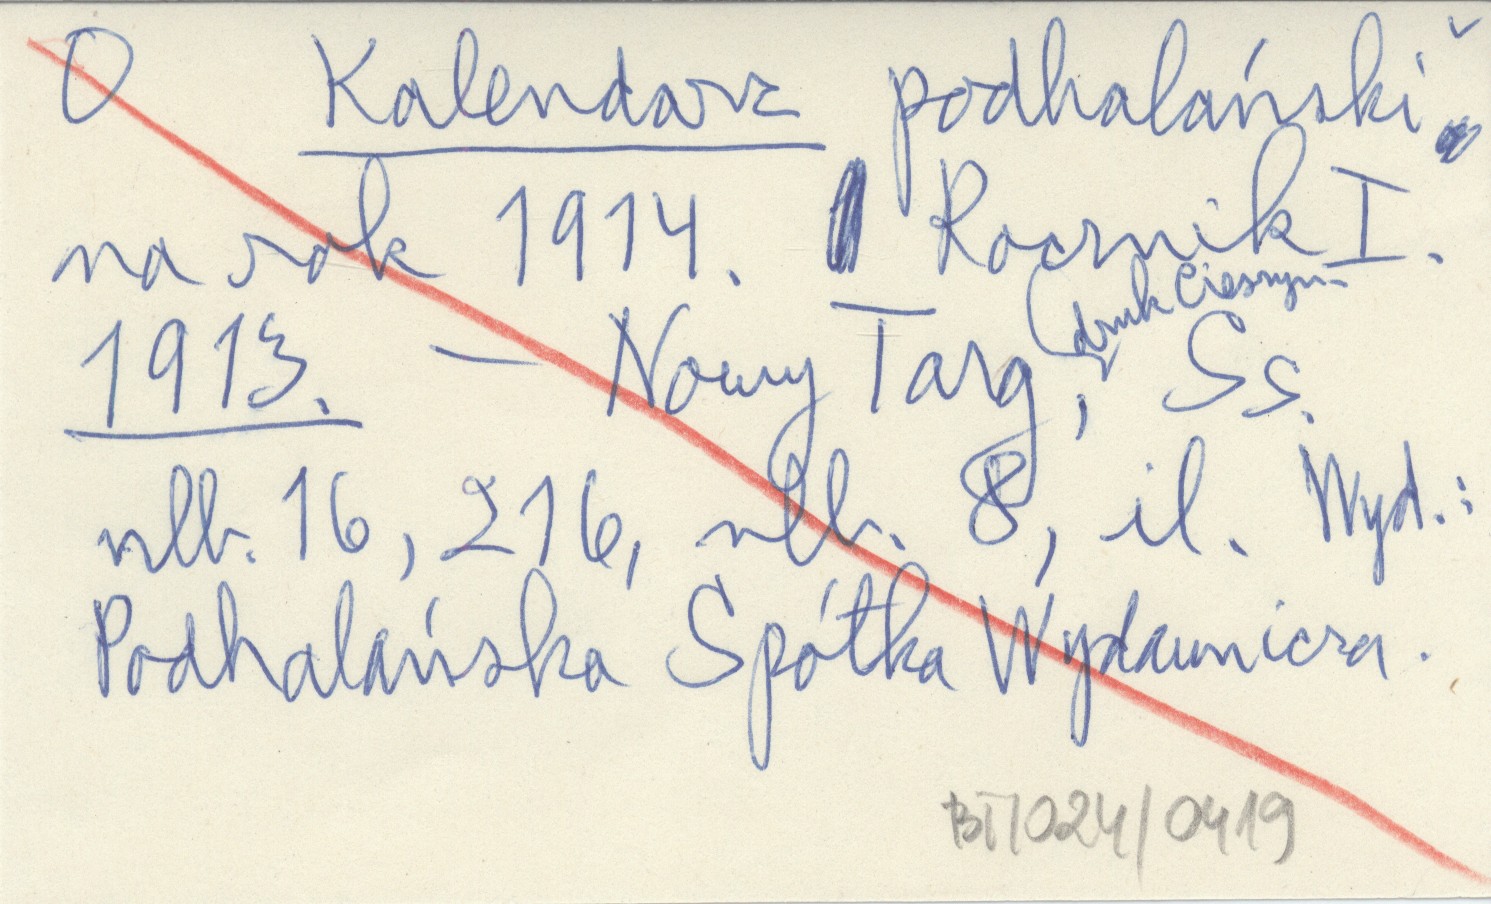 O Kalendarz podhalański
na rok 1914. Rocznik I.
(druk Cieszyn
1913. — Nowy Targ, Ss.
nlb. 16, 216, nlb. 8, il. Wyd.:
Podhalańska Spółka Wydawnicza.
BT/024/0419